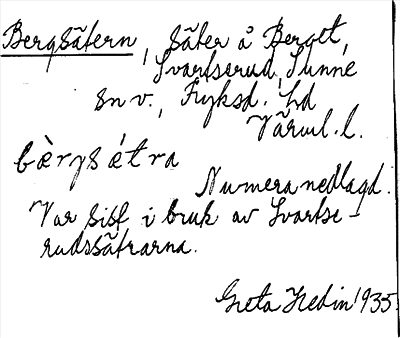 Bergsätern, säter å Berget,
Svartserud, Sunne
sn v., Fryksd. hd
Värml. l.
bèrgsétra
Numera nedlagd.
Var sist i bruk av Svartse-
rudssätrarna.
Greta Hedin 1935